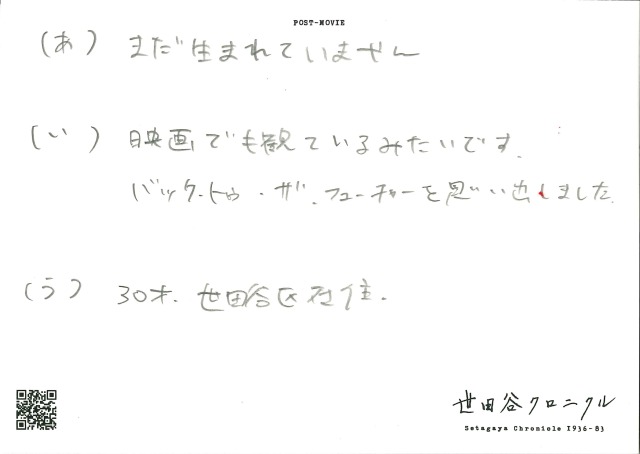 POST-MOVIE
(あ) まだ生まれていません
(い) 映画でも観ているみたいです.
バック・トゥ・ザ・フューチャーを思い出しました.
(う) 30才. 世田谷区在住.
世田谷クロニクル
Setagaya Chronicle 1936-83